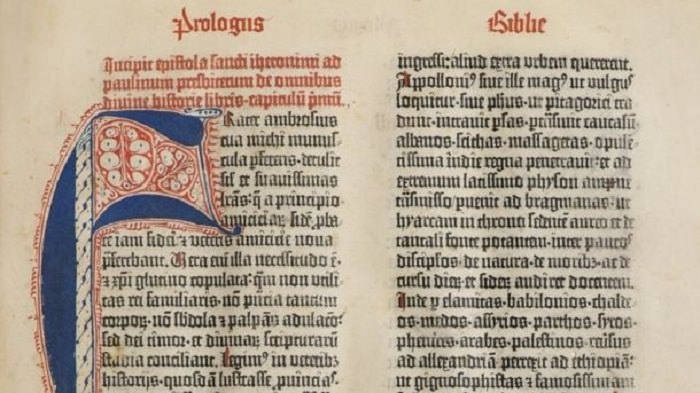 Prologus
Incipit epistola sancti iheronimi ad
paulinum presbiterum de omnibus
divine historie libris· capitulū p̄mū.
Frater ambrosius
tua michi munus-
cula p̄ferens· detulit
sil' et suavissimas
lr̄as· q̄ a principio
amiciciaꝝ· fidē ꝓba-
te iam fidei ⁊ veteris amicicie nova
p̄ferebant. Vera eni illa necessitudo ē·
⁊ xp̄i glutino copulata· qm̄ non vtili-
tas rei familiaris· nō p̄ncia tantum
corpoꝝ· nō sb̄dola ⁊ palpās adulacō·
sed dei timor· et diuinaꝝ scripturaꝝ
studia conciliant. Legim⁹ in veterib⁹
historijs· quosdā lustrasse ꝓuīcias·
Biblie
ingressi: aliud extra vrbem quererent.
Apolloni⁹ siue ille mag⁹ ut vulgus
loquitur· siue ph̄us· ut pitagorici tra-
dunt· intrauit p̄sas· p̄trāsiuit caucasū
albanos· scithas· massagetas· opulē-
tissima indie regna penetrauit: et ad
extremum latissimo physon amne
trāsmisso ꝑuenit ad bragmanas: ut
hyarcam in throno sedentē aureo et de
tantali fonte potantem· inter paucos
discipl̄os· de natura· de moribꝫ· ac de
cursu dieꝝ et sideꝝ audiret docentem.
Inde ꝑ elamitas· babilonios· chalde-
os· medos· assyrios· parthos· syros·
phenices· arabes· palestinos· reūsus
ad allexandriā: perrexit ad ethiopiā:
ut gignosophistas ⁊ famosissimam